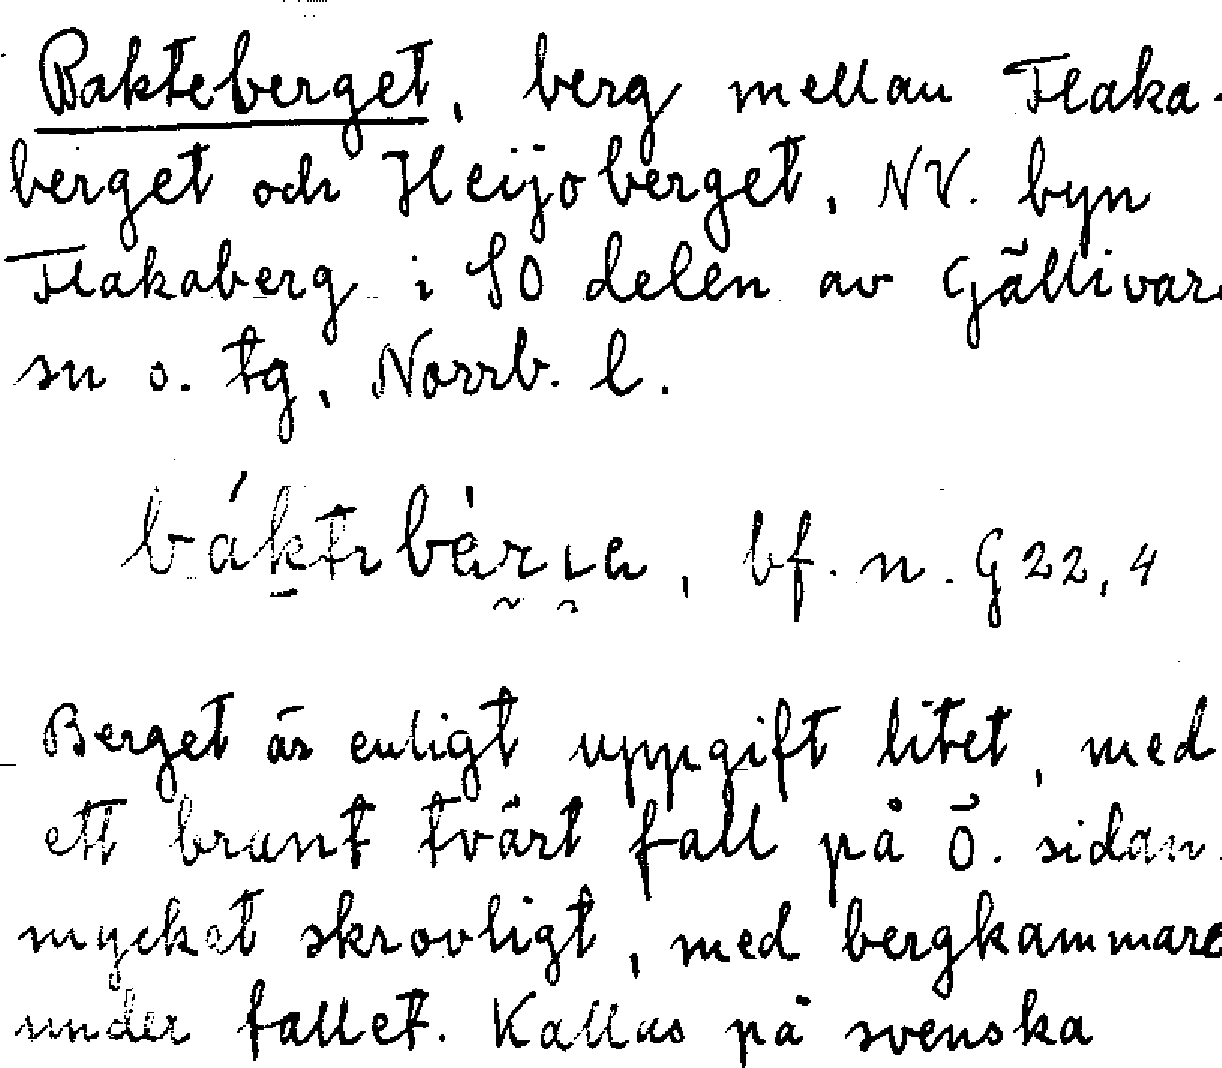 Bakteberget, berg mellan Flaka-
berget och Heijoberget, NV. byn
Flakaberg i SO delen av Gällivare
sn o. tg, Norrb. l.
bf. n. G 22, 4
Berget är enligt uppgift litet, med
ett brant tvärt fall på Ö. sidan.
mycket skrovligt, med bergkammare
under fallet. Kallas på svenska